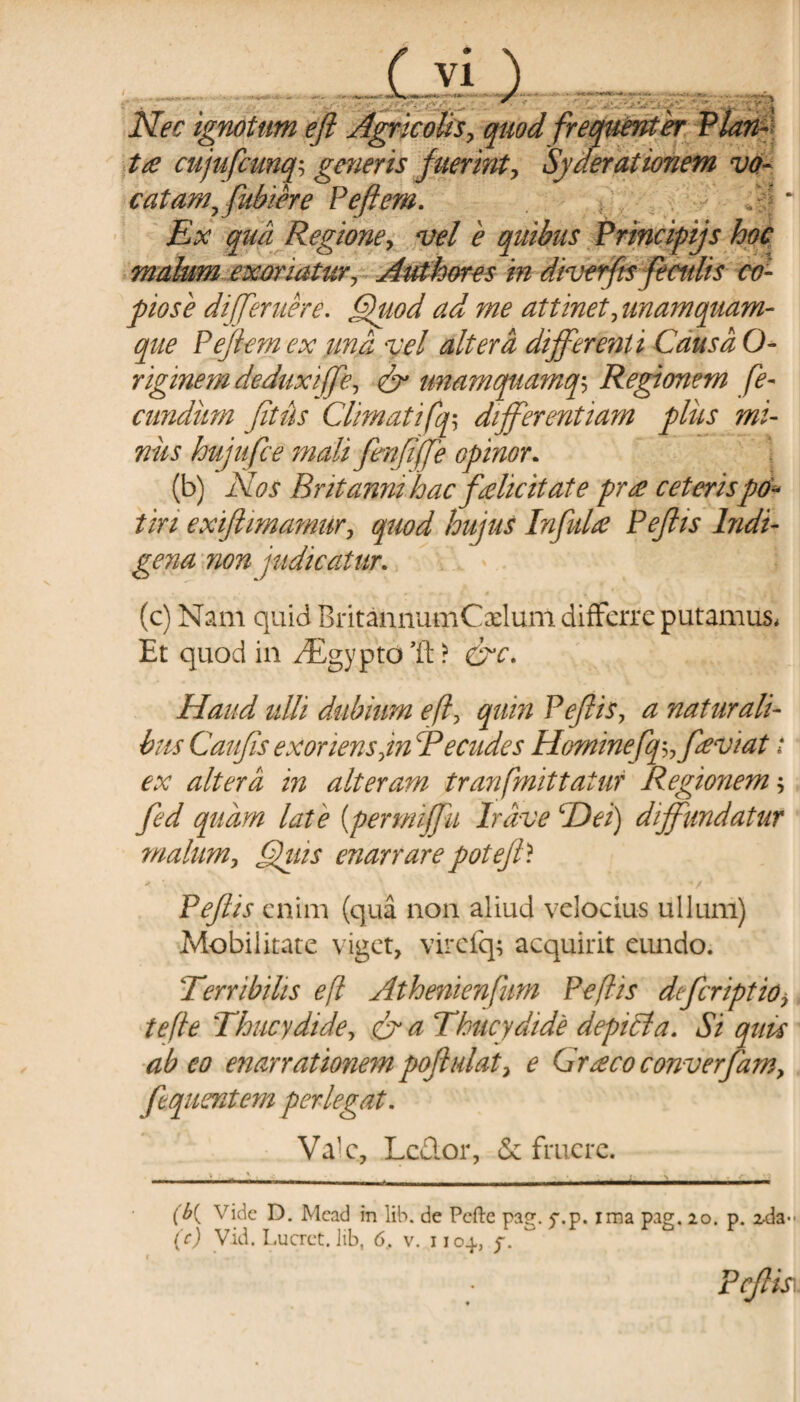 ( vi )
Nec ignotum eſt Agricolis, quod frequenter Plan-
tæ cujuſcunq; generis fuerint, Syderationem vo-
catam, ſubiêre Peſtem.
Ex quâ Regione, vel è quibus Principijs hoc
malum exoriatur, Authores in diverſis ſeculis co-
piosè diſſeruêre. Quod ad me attinet, unamquam-
que Peſtem ex unâ vel alterâ differenti Causâ O-
riginem deduxiſſe, & unamquamq; Regionem ſe-
cundùm ſitûs Climatiſq; differentiam plùs mi-
nùs hujuſce mali ſenſiſſe opinor.
(b) Nos Britanni hac fælicitate præ ceteris po-
tiri exiſtimamur, quod hujus Inſulæ Peſtis Indi-
gena non judicatur.
(c) Nam quid BritannumCælum differre putamus.
Et quod in Ægypto 'ſt? &c.
Haud ulli dubium eſt, quin Peſtis, a naturali-
bus Cauſis exoriens, in Pecudes Homineſq;, ſæviat:
ex alterâ in alteram tranſmittatur Regionem;
ſed quàm latè (permiſſu Irâve Dei) diffundatur
malum, Quis enarrare poteſt?
Peſtis enim (quâ non aliud velocius ullum)
Mobilitate viget, vireſq; acquirit eundo.
Terribilis eſt Athenienſium Peſtis deſcriptio,
teſte Thucydide, & a Thucydidè depicta. Si quis
ab eo enarrationem poſtulat, e Græco converſam,
ſequentem perlegat.
Vale, Lector, & fruere.
(b( Vide D. Mead in lib. de Peſte pag. 5.p. 1ma pag. 20. p. 2da-
(c) Vid. Lucret. lib, 6. v. 1104, 5.
Peſtis